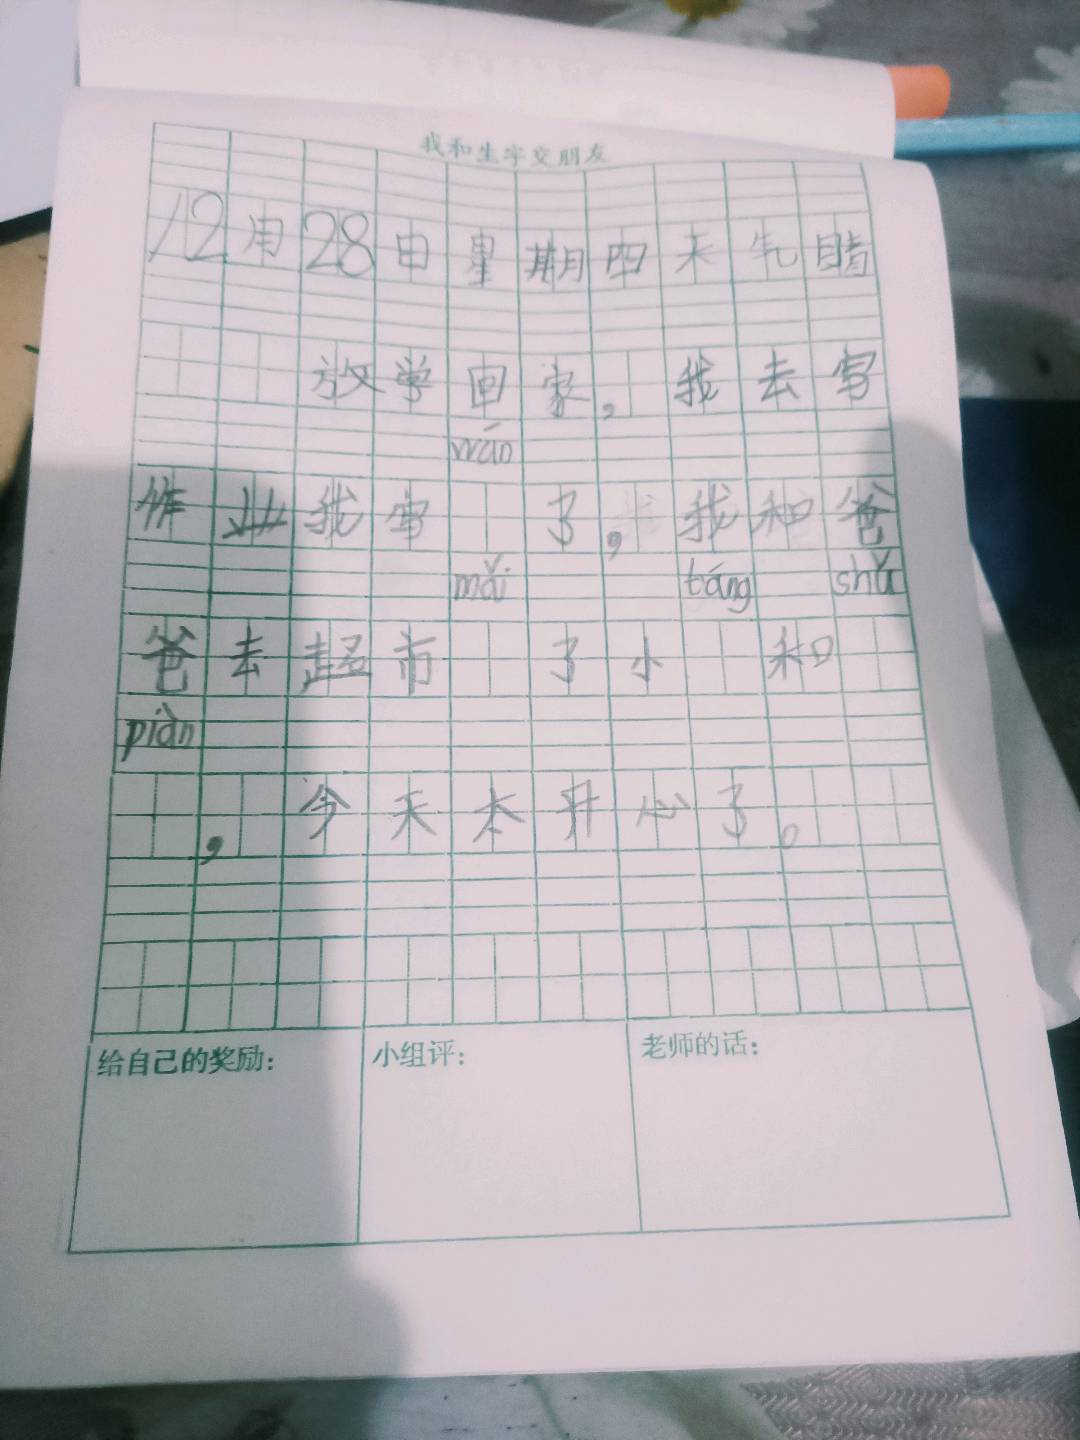 我和生字交朋友
12月28日星期四天气晴
放学回家,我去写
wán
作业我写 了,我和爸
mǎi táng shǔ
爸去超市 了小 和
piàn
,今天太开心了。
给自己的奖励: 小组评: 老师的话: